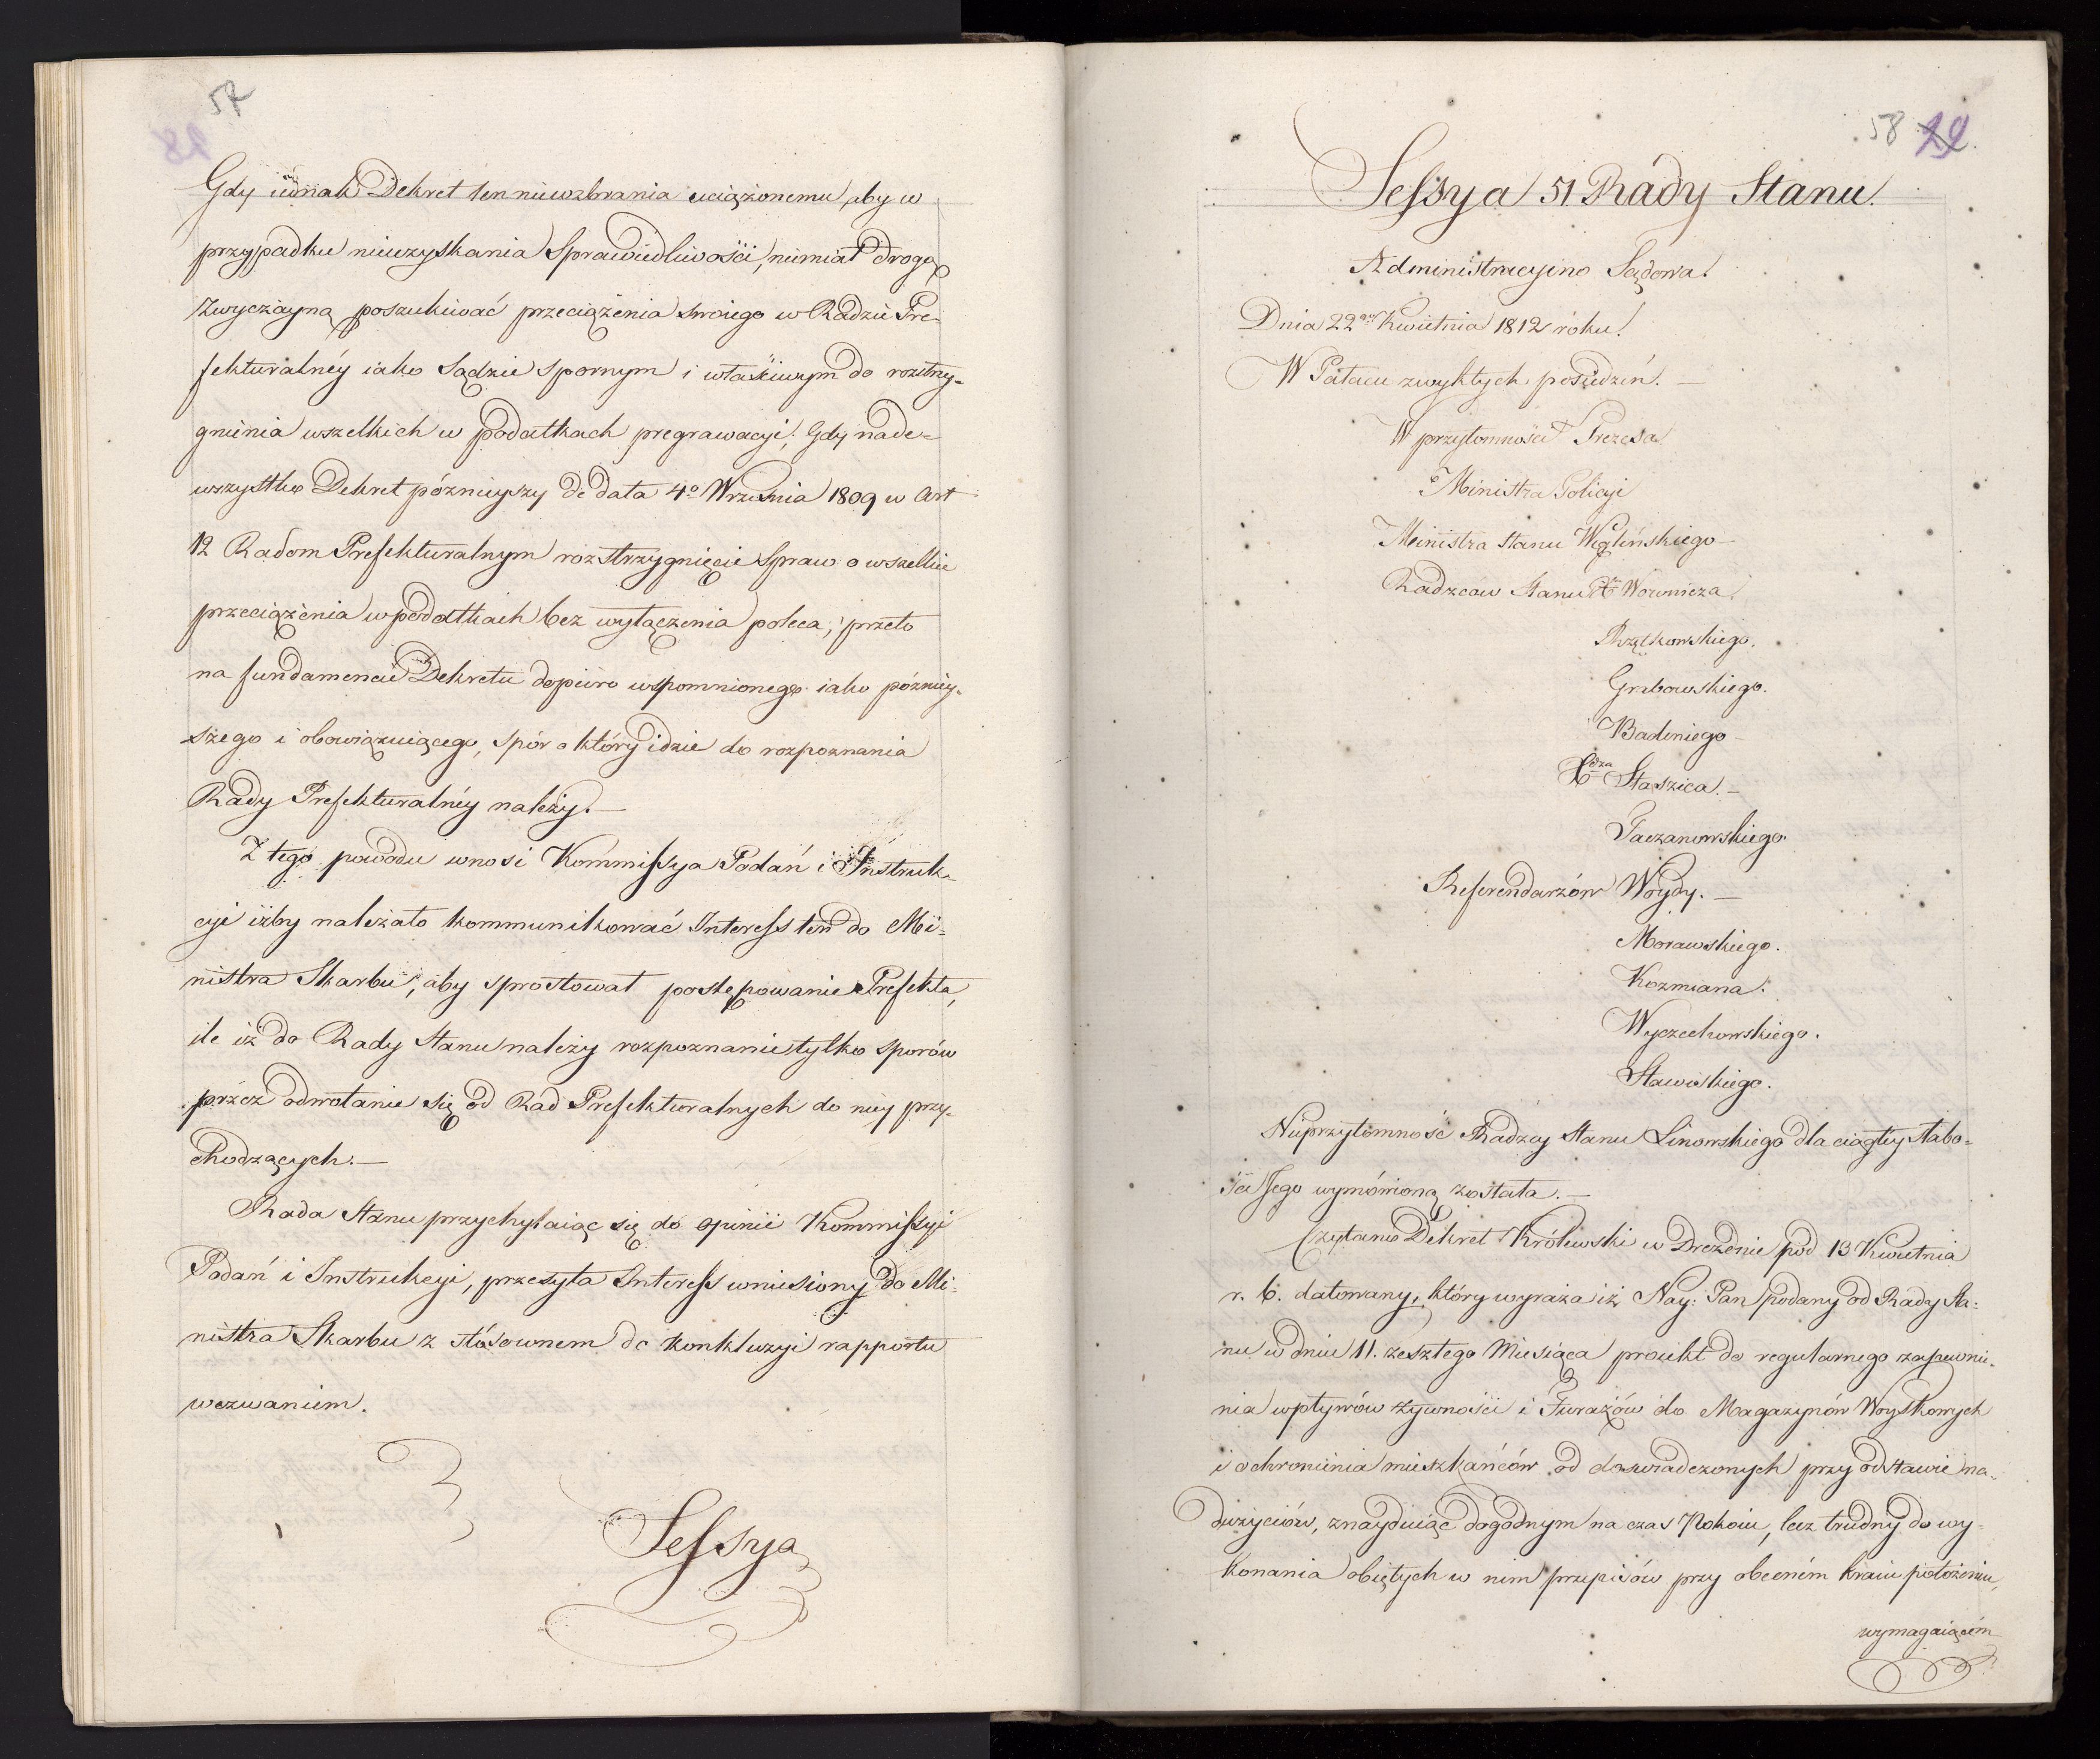 57
28
Gdy iednak Dekret ten niewzbrania uciążonemu, aby w
przypadku nieuzyskania Sprawiedliwości, niemiał drogą
zwyczayną poszukiwać przeciążenia swoiego w Radzie Pre-
fekturalnéy iako Sądzie spornym i właściwym do roztrzy-
gnienia wszelkich w podatkach pregrawacyi; Gdy nade-
wszystko Dekret późnieyszy de data 4º Września 1809 w Art
12 Radom Prefekturalnym rozstrzygnięcie Spraw o wszelkie
przeciążenia w podatkach bez wyłączenia poleca; przeto
na fundamencie Dekretu dopiero wspomnionego iako późniey-
szego i obowiązuiącego, spór o który idzie do rozpoznania
Rady Prefekturalnéy należy. —
Z tego powodu wnosi Kommissya Podań i Instruk-
cyi iżby należało kommunikować Interess ten do Mi-
nistra Skarbu, aby sprostował postępowanie Prefekta,
ile iż do Rady Stanu należy rozpoznanie tylko sporów
przez odwołanie się od Rad Prefekturalnych do niey przy-
chodzących. —
Rada Stanu przychylaiąc się do opinii Kommissyi
Podań i Instrukcyi, przesyła Interess wniesiony do Mi-
nistra Skarbu z stósownem do konkluzyi rapportu
wezwaniem.
Sessya
58 29
Sessya 51 Rady Stanu.
Administracyino Sądowa.
Dnia 22go Kwietnia 1812 roku.
W Pałacu zwykłych posiedzeń. —
W przytomności Prezesa
Ministra Policyi
Ministra Stanu Węgleńskiego —
Radzców Stanu Xcia Woronicza.
Rzętkowskiego.
Grabowskiego.
Badeniego —
Xdza Staszica. —
Taczanowskiego.
Referendarzów Woydy. —
Morawskiego.
Kozmiana.
Wyczechowskiego.
Sławskiego.
Nieprzytomność Radzcy Stanu Linowskiego dla ciągłéy słabo-
ści Jego wymówioną została. —
Czytano Dekret Królewski w Dreznie pod 13 Kwietnia
r. b. datowany, który wyraża iż Nay: Pan podany od Rady Sta-
nu w dniu 11. zeszłego Miesiąca proiekt do regularnego zapewnie-
nia wpływów żywności i Furażów do Magazynów Woyskowych
i ochronienia mieszkańców od doswiadczonych przy odstawie na-
dużyciów, znayduiąc dogodnym na czas Pokoiu, lecz trudny do wy-
konania obiętych w nim przepisów przy obecném kraiu położeniu,
wymagaiącém